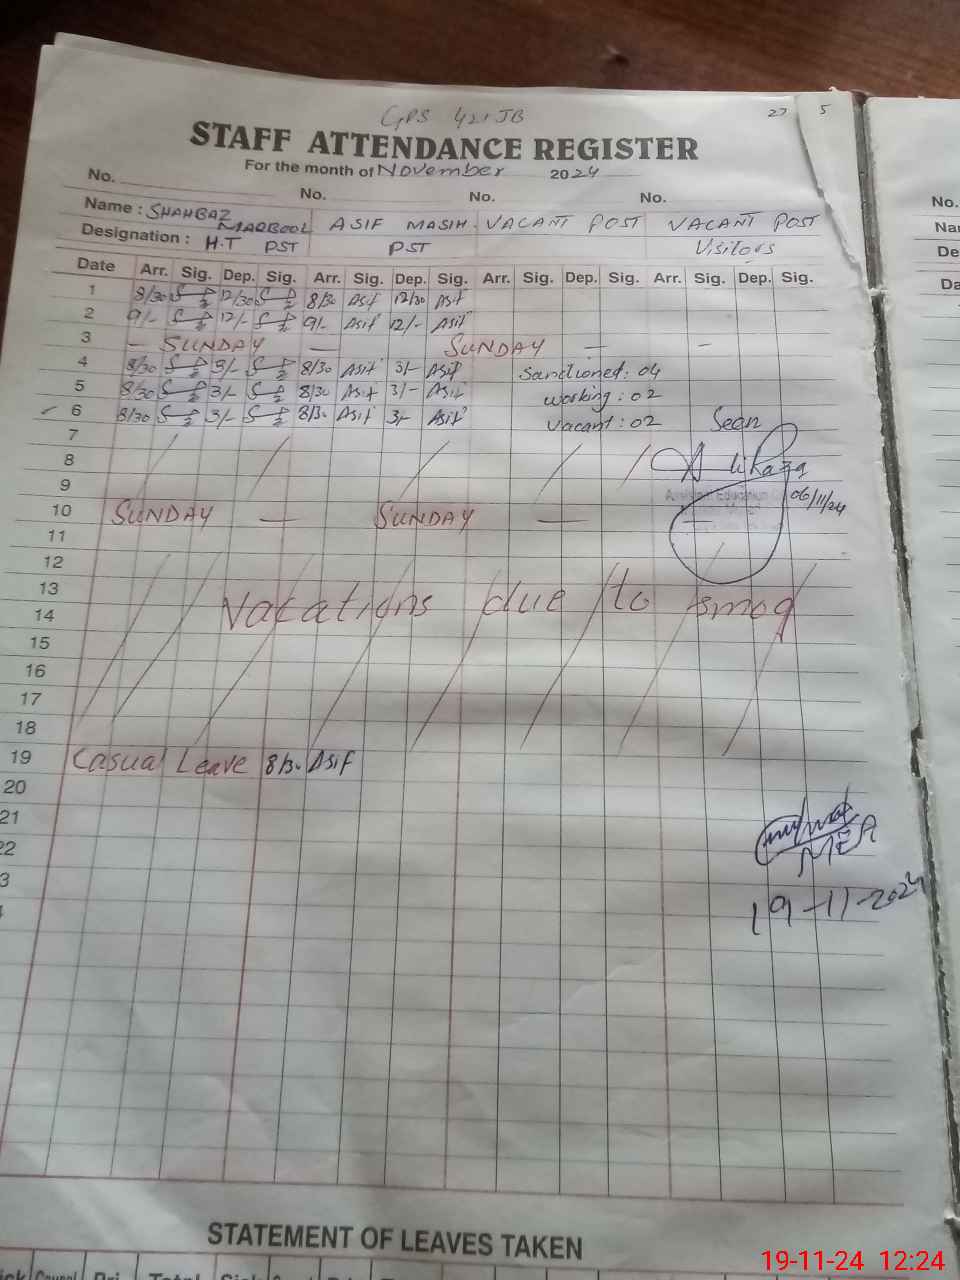 GPS 421 JB
27 5
STAFF ATTENDANCE REGISTER
For the month of November 2024
No. No. No. No.
Name : SHAHBAZ MAQBOOL ASIF MASIH VACANT POST VACANT POST
Designation : H.T PST PST Visitors
Date Arr. Sig. Dep. Sig. Arr. Sig. Dep. Sig. Arr. Sig. Dep. Sig. Arr. Sig. Dep. Sig.
1 8/30 12/30 8/30 Asif 12/30 Asif
2 9/- 12/- 9/- Asif 12/- Asif
3 — SUNDAY — SUNDAY — —
4 8/30 3/- 8/30 Asif 3/- Asif Sanctioned: 04
5 8/30 3/- 8/30 Asif 3/- Asif working: 02
6 8/30 3/- 8/30 Asif 3/- Asif Vacant: 02 Seen
7
8 Ali Raza
9 Assistant Education 06/11/24
10 SUNDAY — SUNDAY —
11
12
13 Vacations due to smog
14
15
16
17
18
19 Casual Leave 8/30 Asif
20
21
22 MEA
3
19-11-2024
STATEMENT OF LEAVES TAKEN
No.
Na
De
Da
19-11-24 12:24